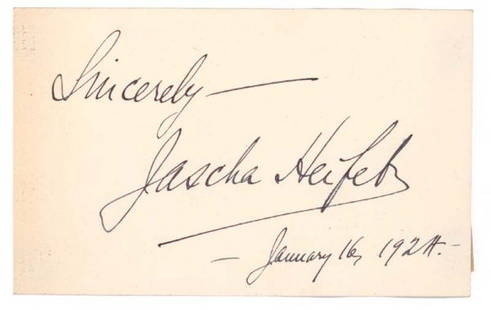 Sincerely —
Jascha Heifetz
— January 16, 1924. —